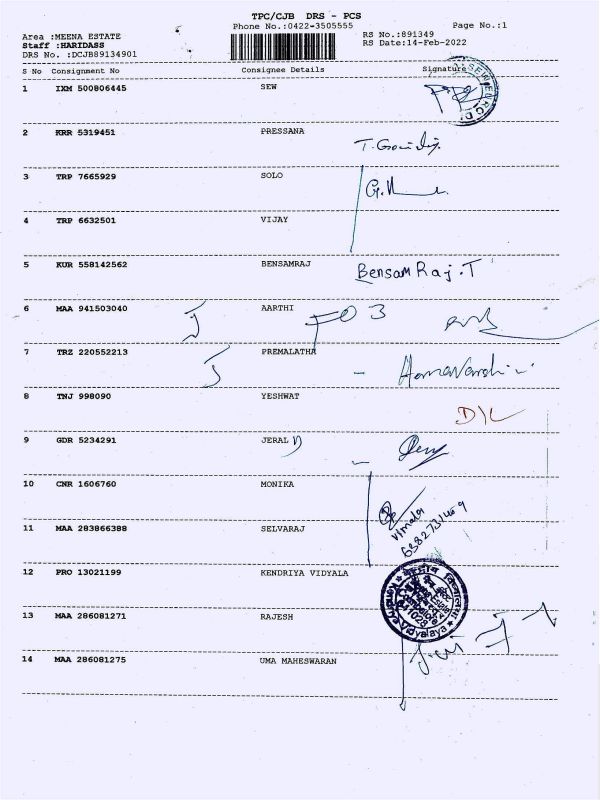 TPC/CJB DRS - PCS
Phone No.:0422-3505555
Page No.:1
Area :MEENA ESTATE
Staff :HARIDASS
DRS No. :DCJB89134901
RS No.:891349
RS Date:14-Feb-2022
S No Consignment No Consignee Details Signature
1 IXM 500806445 SEW
2 KRR 5319451 PRESSANA
3 TRP 7665929 SOLO
4 TRP 6632501 VIJAY
5 KUR 558142562 BENSAMRAJ BensamRaj.T
6 MAA 941503040 AARTHI
7 TRZ 220552213 PREMALATHA
8 TNJ 998090 YESHWAT
9 GDR 5234291 JERAL D
10 CNR 1606760 MONIKA
Vimala
11 MAA 283866388 SELVARAJ
12 PRO 13021199 KENDRIYA VIDYALA
Vidyalaya
13 MAA 286081271 RAJESH
14 MAA 286081275 UMA MAHESWARAN